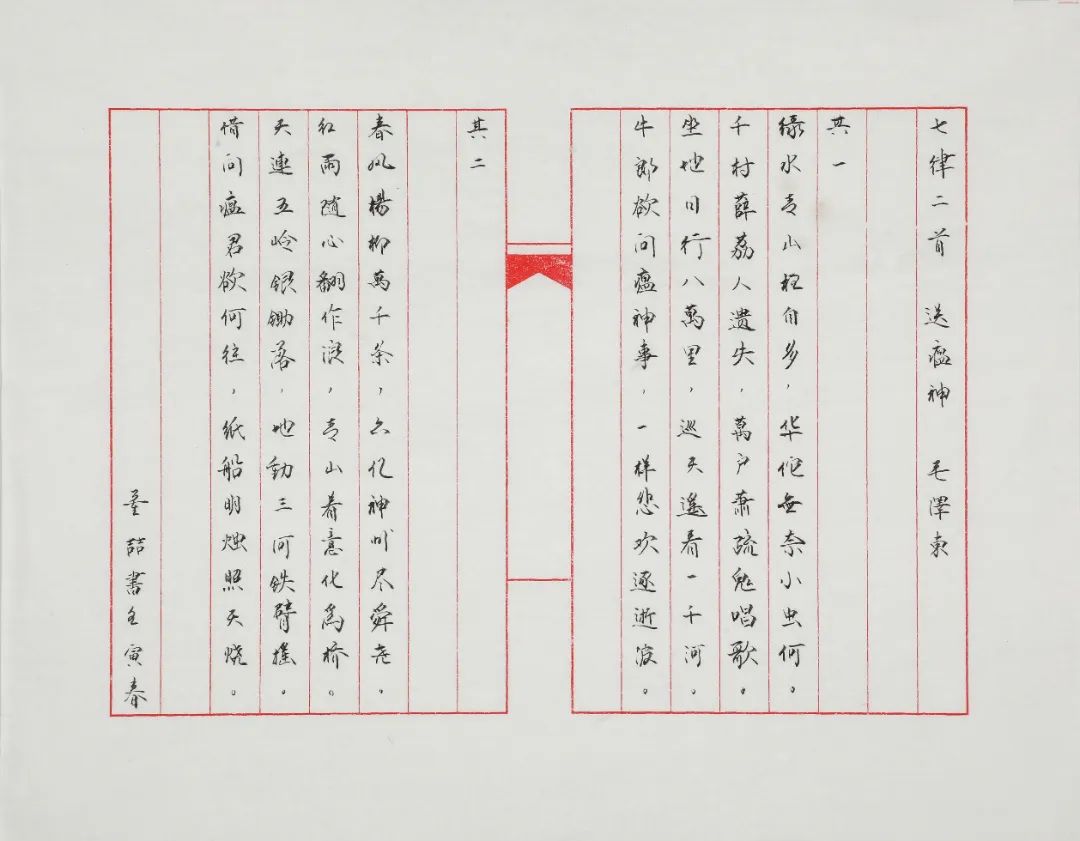 七律二首 送瘟神 毛澤東
其一
绿水青山枉自多，华佗無奈小虫何。
千村薜荔人遗失，萬户萧疏鬼唱歌。
坐地日行八萬里，巡天遥看一千河。
牛郎欲问瘟神事，一样悲欢逐逝波。
其二
春风楊柳萬千条，六亿神州尽舜尧。
红雨随心翻作浪，青山着意化為桥。
天連五岭银锄落，地動三河铁臂摇。
借问瘟君欲何往，纸船明烛照天烧。
喆書壬寅春